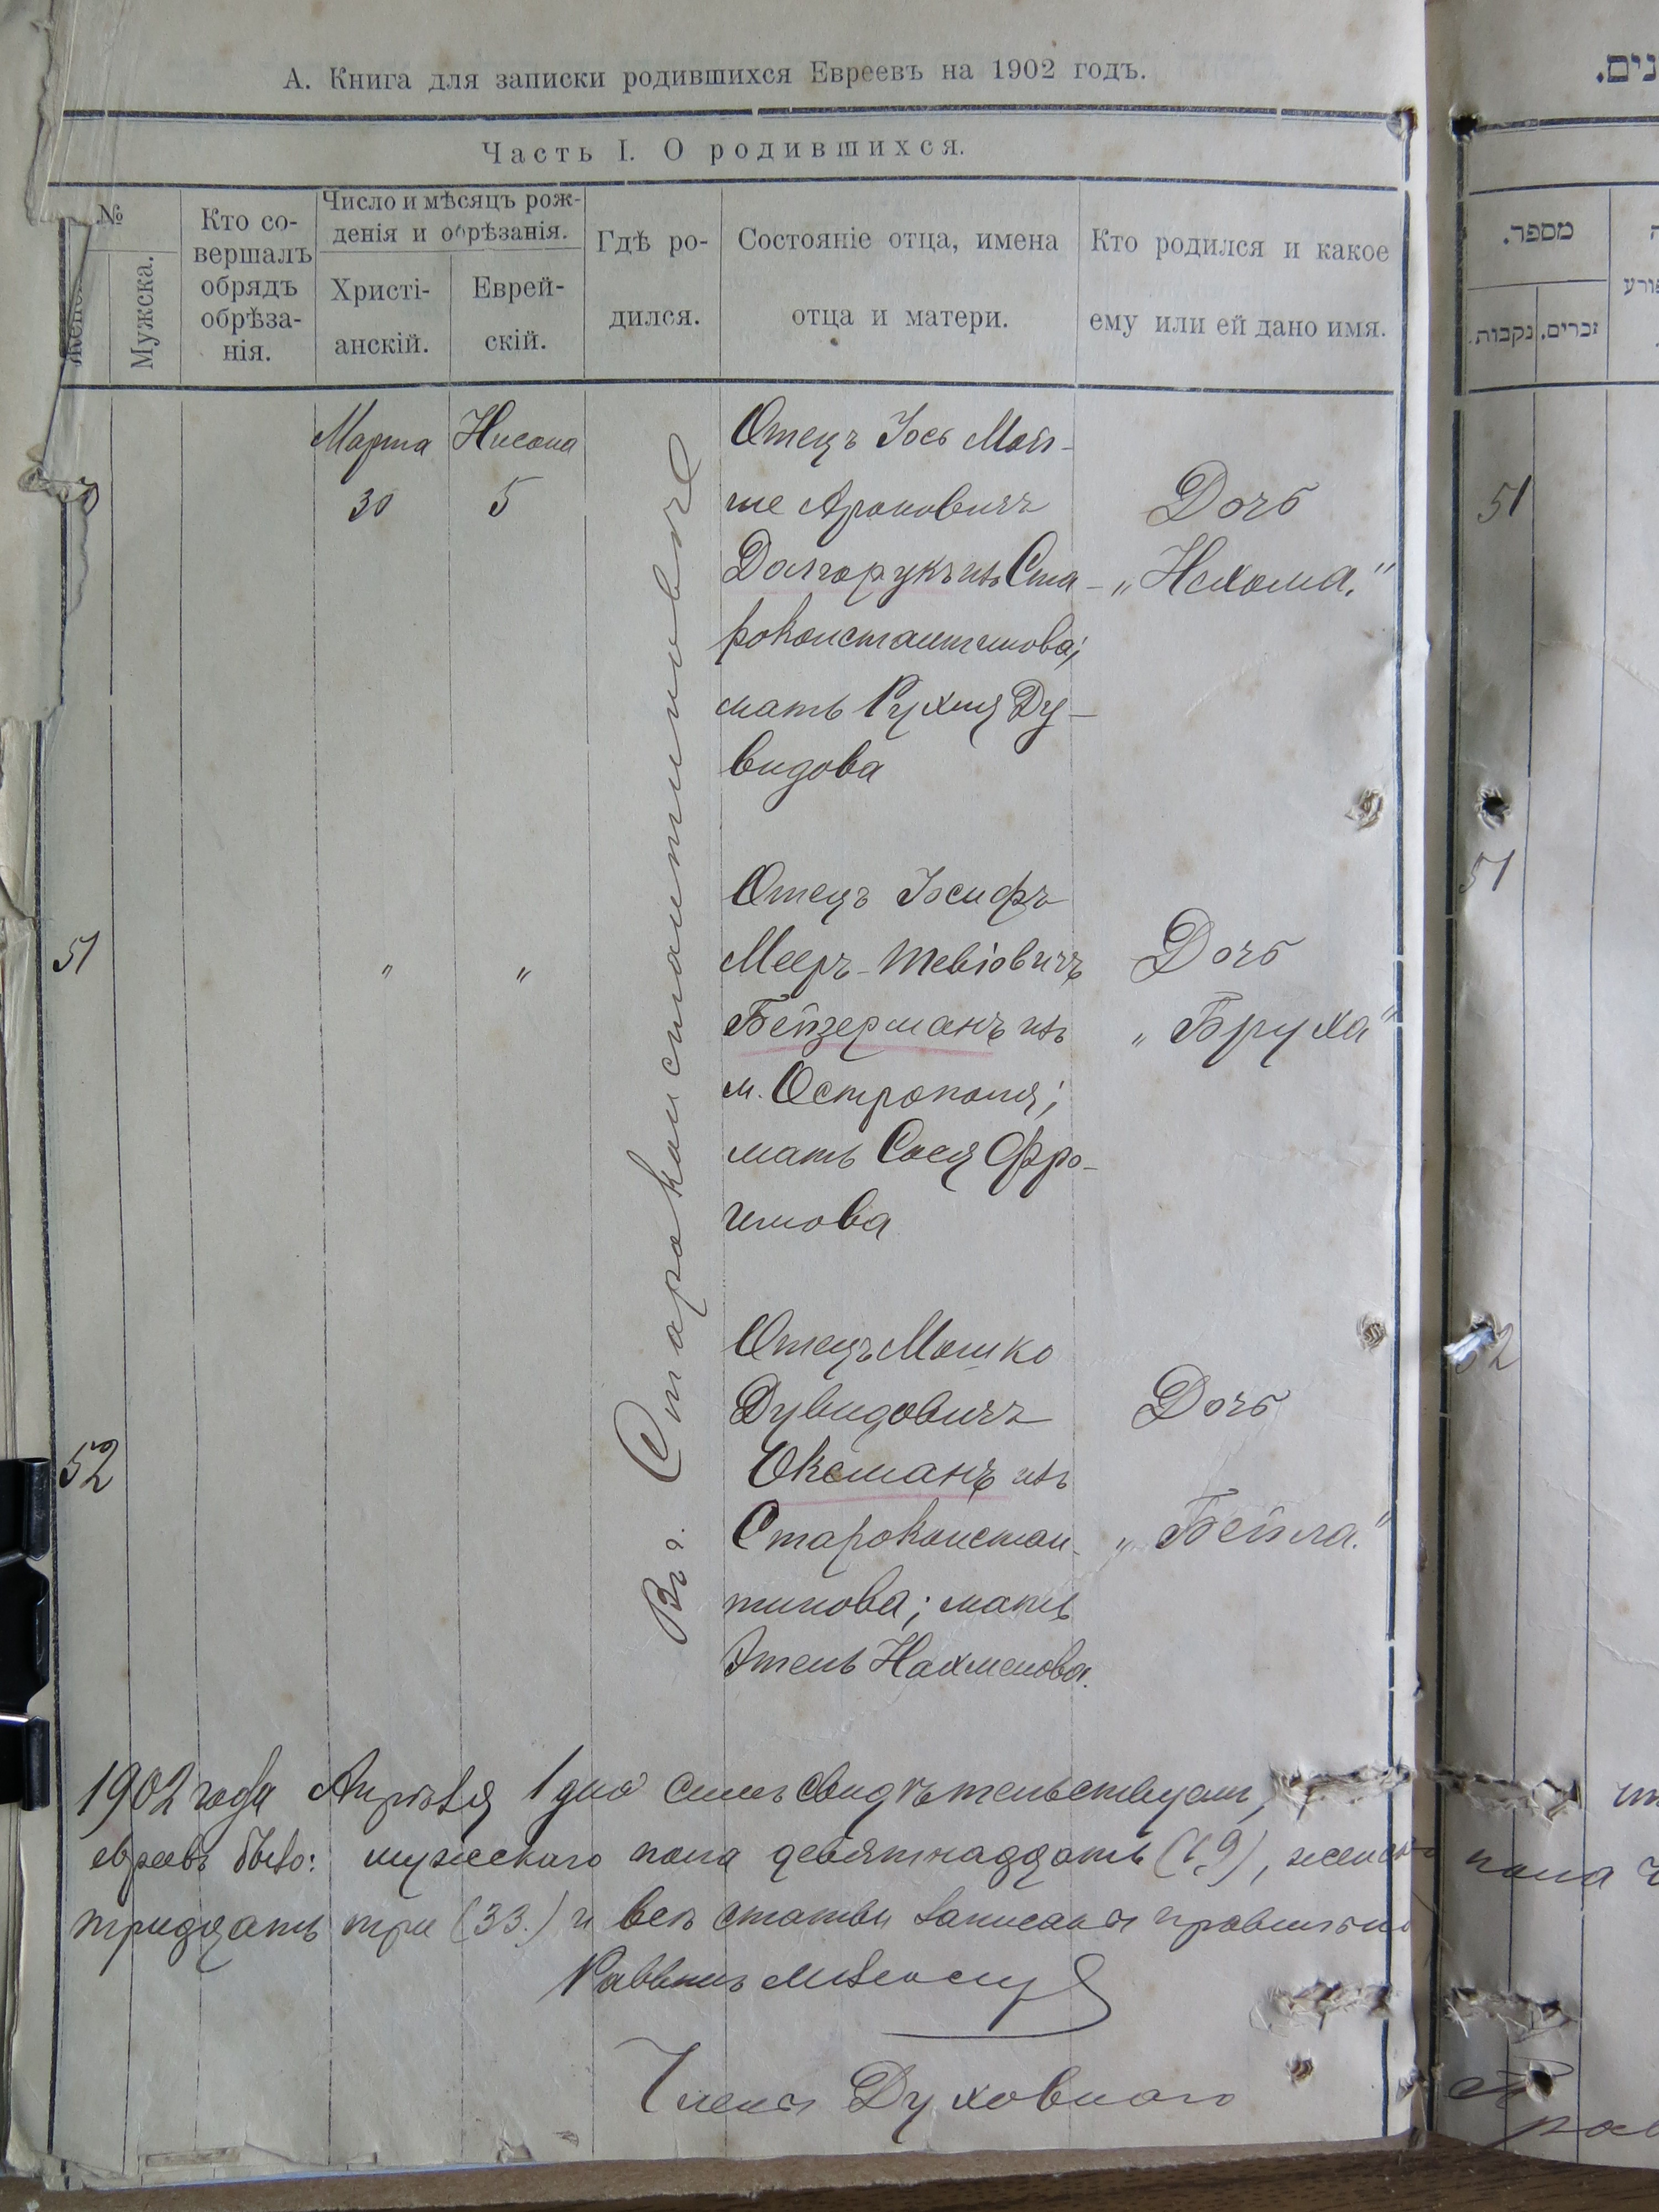 А. Книга для записки родившихся Евреевъ на 1902 годъ.
Часть I. О родившихся.
№
Мужска.
Кто со-
вершалъ
обрядъ
обрѣза-
нія.
Число и мѣсяцъ рож-
денія и обрѣзанія.
Христі-
анскій.
Еврей-
скій.
Гдѣ ро-
дился.
Состояніе отца, имена
отца и матери.
Кто родился и какое
ему или ей дано имя.
Марта
30
Нисона
5
Въ г. Староконстантиновѣ
Отецъ Іось Мой-
ше Ароновичъ
Долгорукъ изъ Ста-
роконстантинова;
мать Рухля Ду-
видова
Дочь
„Нехома."
51
„
„
Отецъ Іосифъ
Мееръ-Тевіовичъ
Бейзерманъ изъ
м. Острополя;
мать Сося Фро-
имова
Дочь
„Бруха"
52
Отецъ Мошко
Дувидовичъ
Оксманъ изъ
Староконстан-
тинова; мать
Этель Нахменова.
Дочь
„Бейла."
1902 года Апрѣля 1 дня симъ свидѣтельствуемъ,
евреевъ было: мужескаго пола девятнадцать (19),
тридцать три (33.) и всѣ статьи записаны правильно
Раввинъ
Члены Духовнаго
נים.
מספר.
זכרים.
נקבות.
51
51
пола